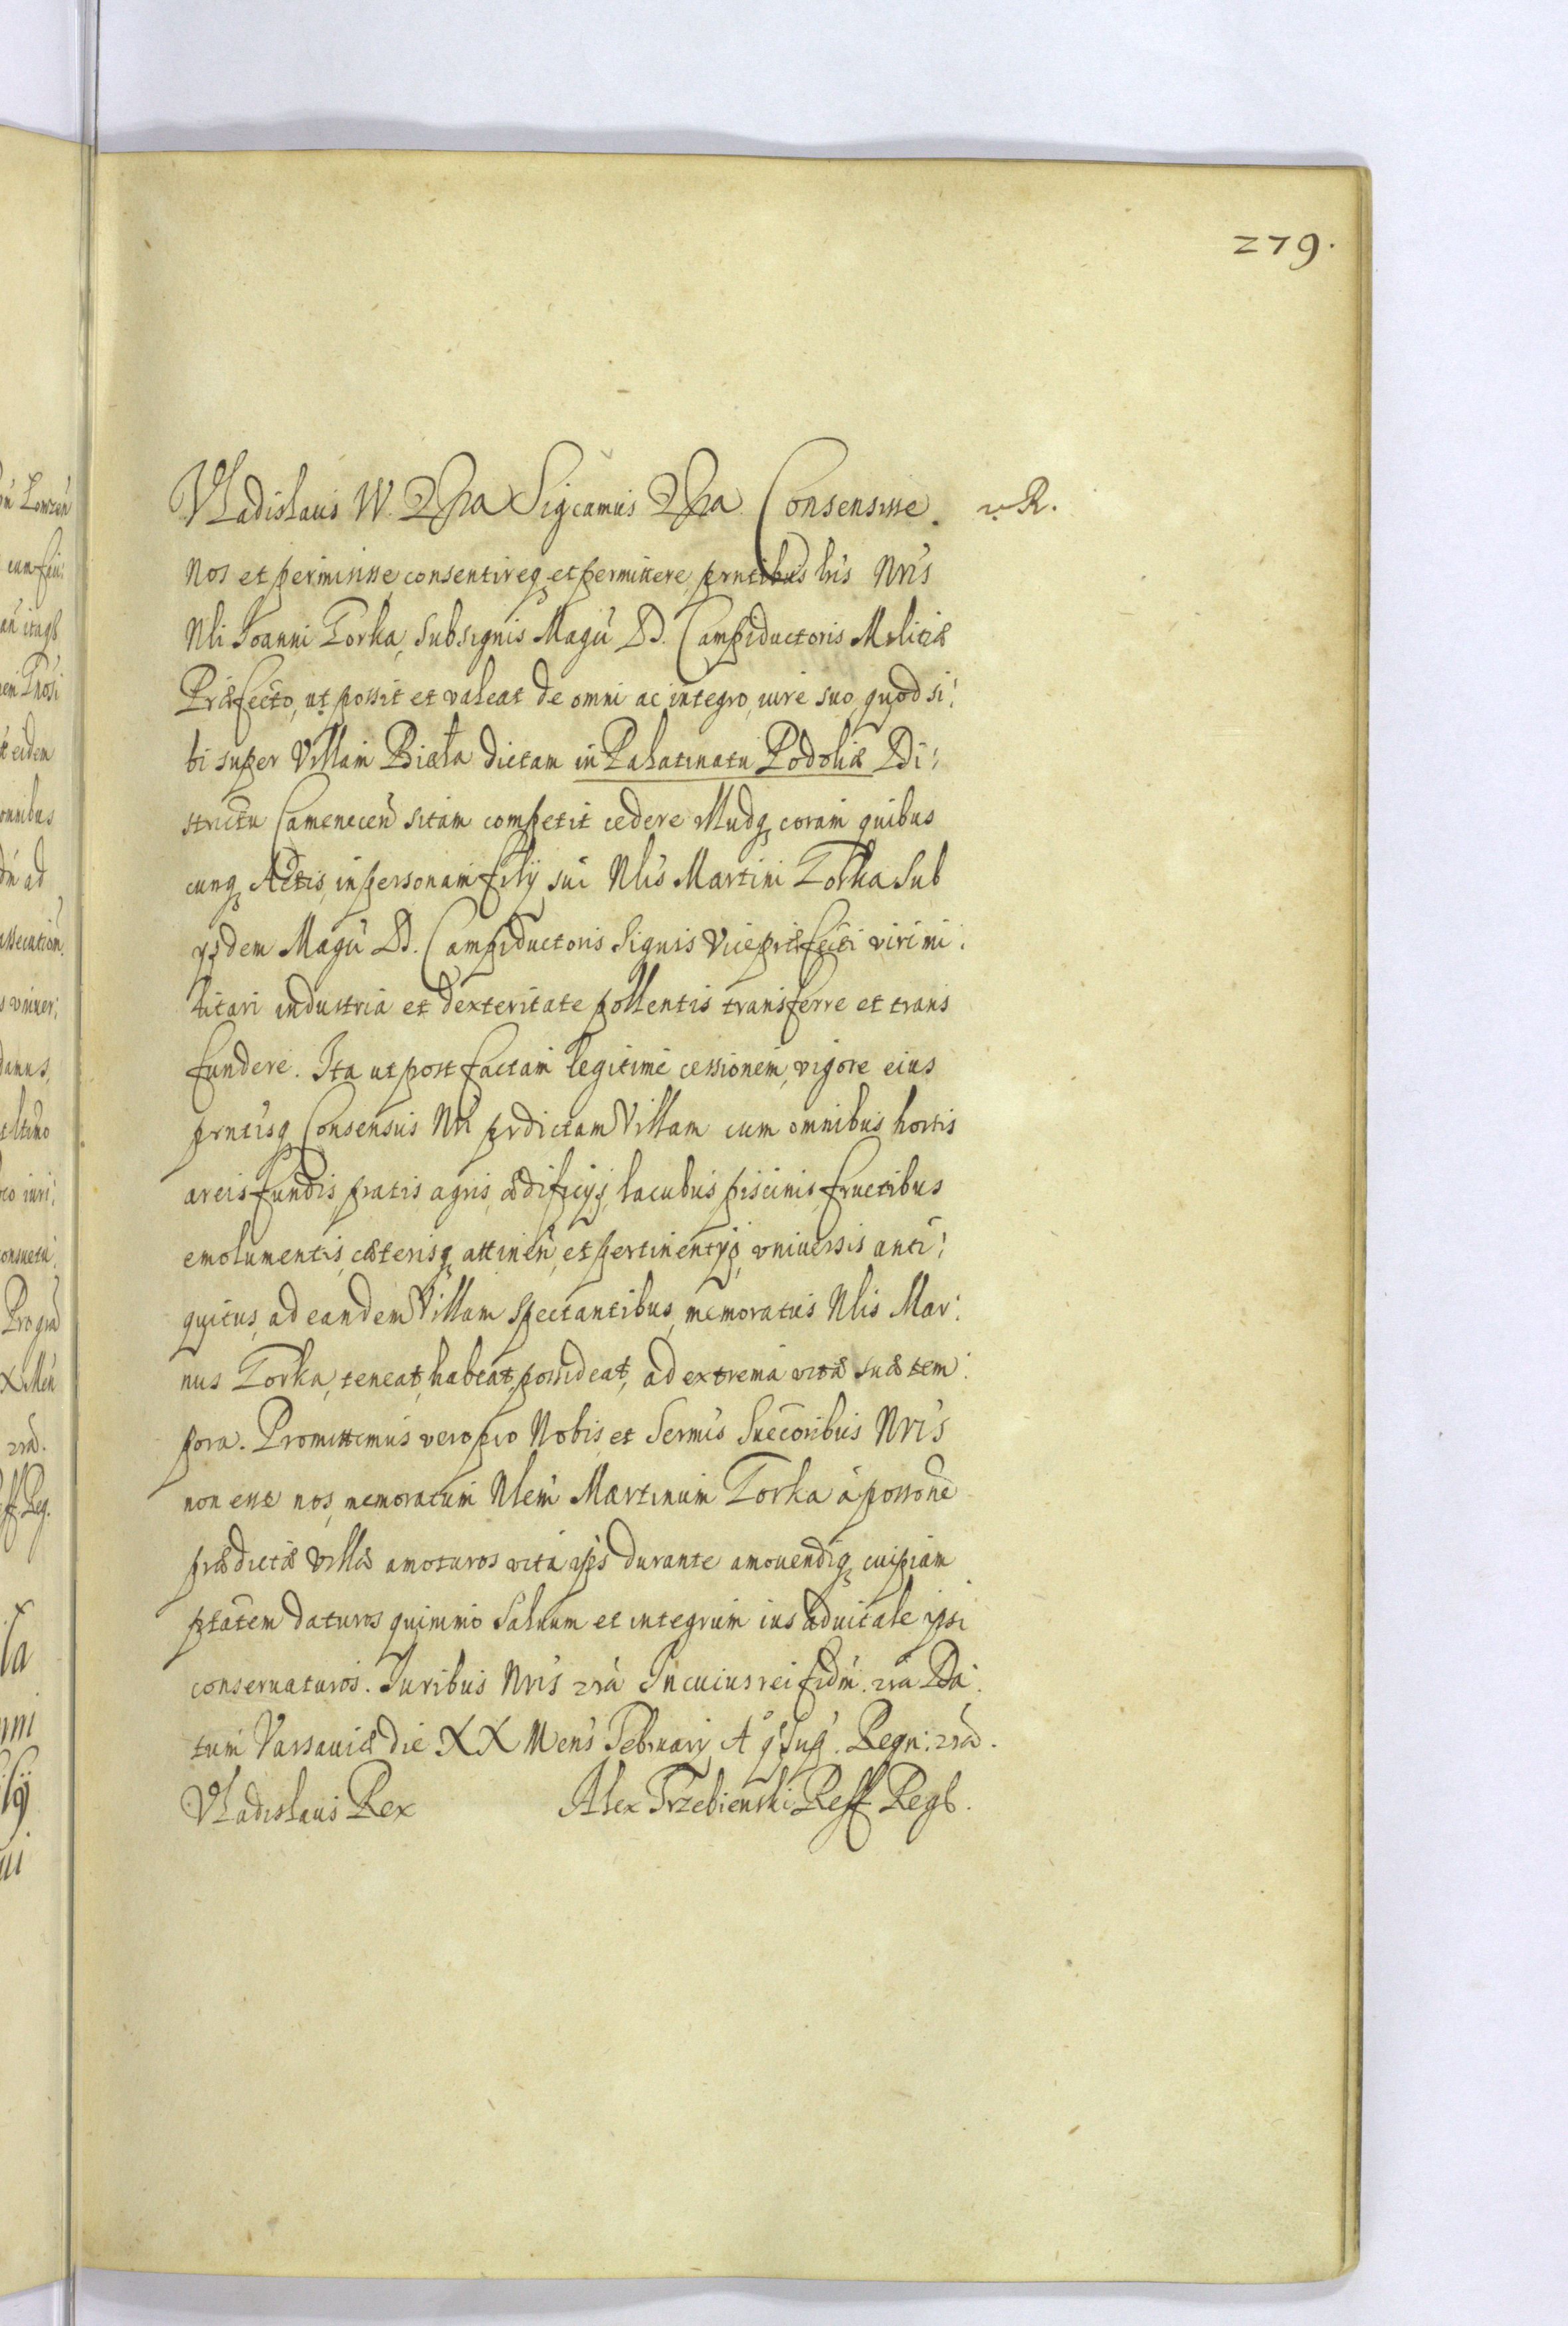 279.
Vladislaus IV. Dei gra Sigcamus Dra Consensisse. v. R.
Nos et permisisse, consentireq et permittere prntibus lris Nris
Nli Joanni Torka, sub signis Magn D. Campiductoris Militiæ
Præfecto, ut possit et valeat de omni ac integro, iure suo, quod si:
bi super Villam Biała dictam in Palatinatu Podoliæ Di:
strictu Camenecen sitam competit cedere illudq coram quibus
cunq Actis, in personam filij sui Nlis Martini Torka sub
ysdem Magn D. Campiductoris signis Vicepræfecti viri mi:
litari industria et dexteritate pollentis transferre et trans
fundere. Ita ut post factam legitime cessionem, vigore eius
prntisq Consensus Nri prdictam Villam cum omnibus hortis
areis fundis, pratis, agris, ædificijs, lacubus, piscinis, fructibus
emolumentis, cæterisq attinen, et pertinentijs, vniuersis anti:
quitus, ad eandem Villam spectantibus, memoratus Nlis Mar:
nus Torka, teneat, habeat, possideat, ad extrema vitæ suæ tem:
pora. Promittimus vero pro Nobis, et Sermis Succoribus Nris
non esse nos, memoratum Nlem Martinum Torka à possone
prædictæ Villæ amoturos vita ipsi durante amouendiq cuipiam
ptatem daturos quinimo saluum et integrum ius aduitale ipsi
conseruaturos. Iuribus Nris zra In cuius rei fidm. zra Da:
tum Varsauiæ die XX Mens Februarij A q sup. Regn: zra.
Vladislaus Rex Alex Trzebienski Reff. Regs.